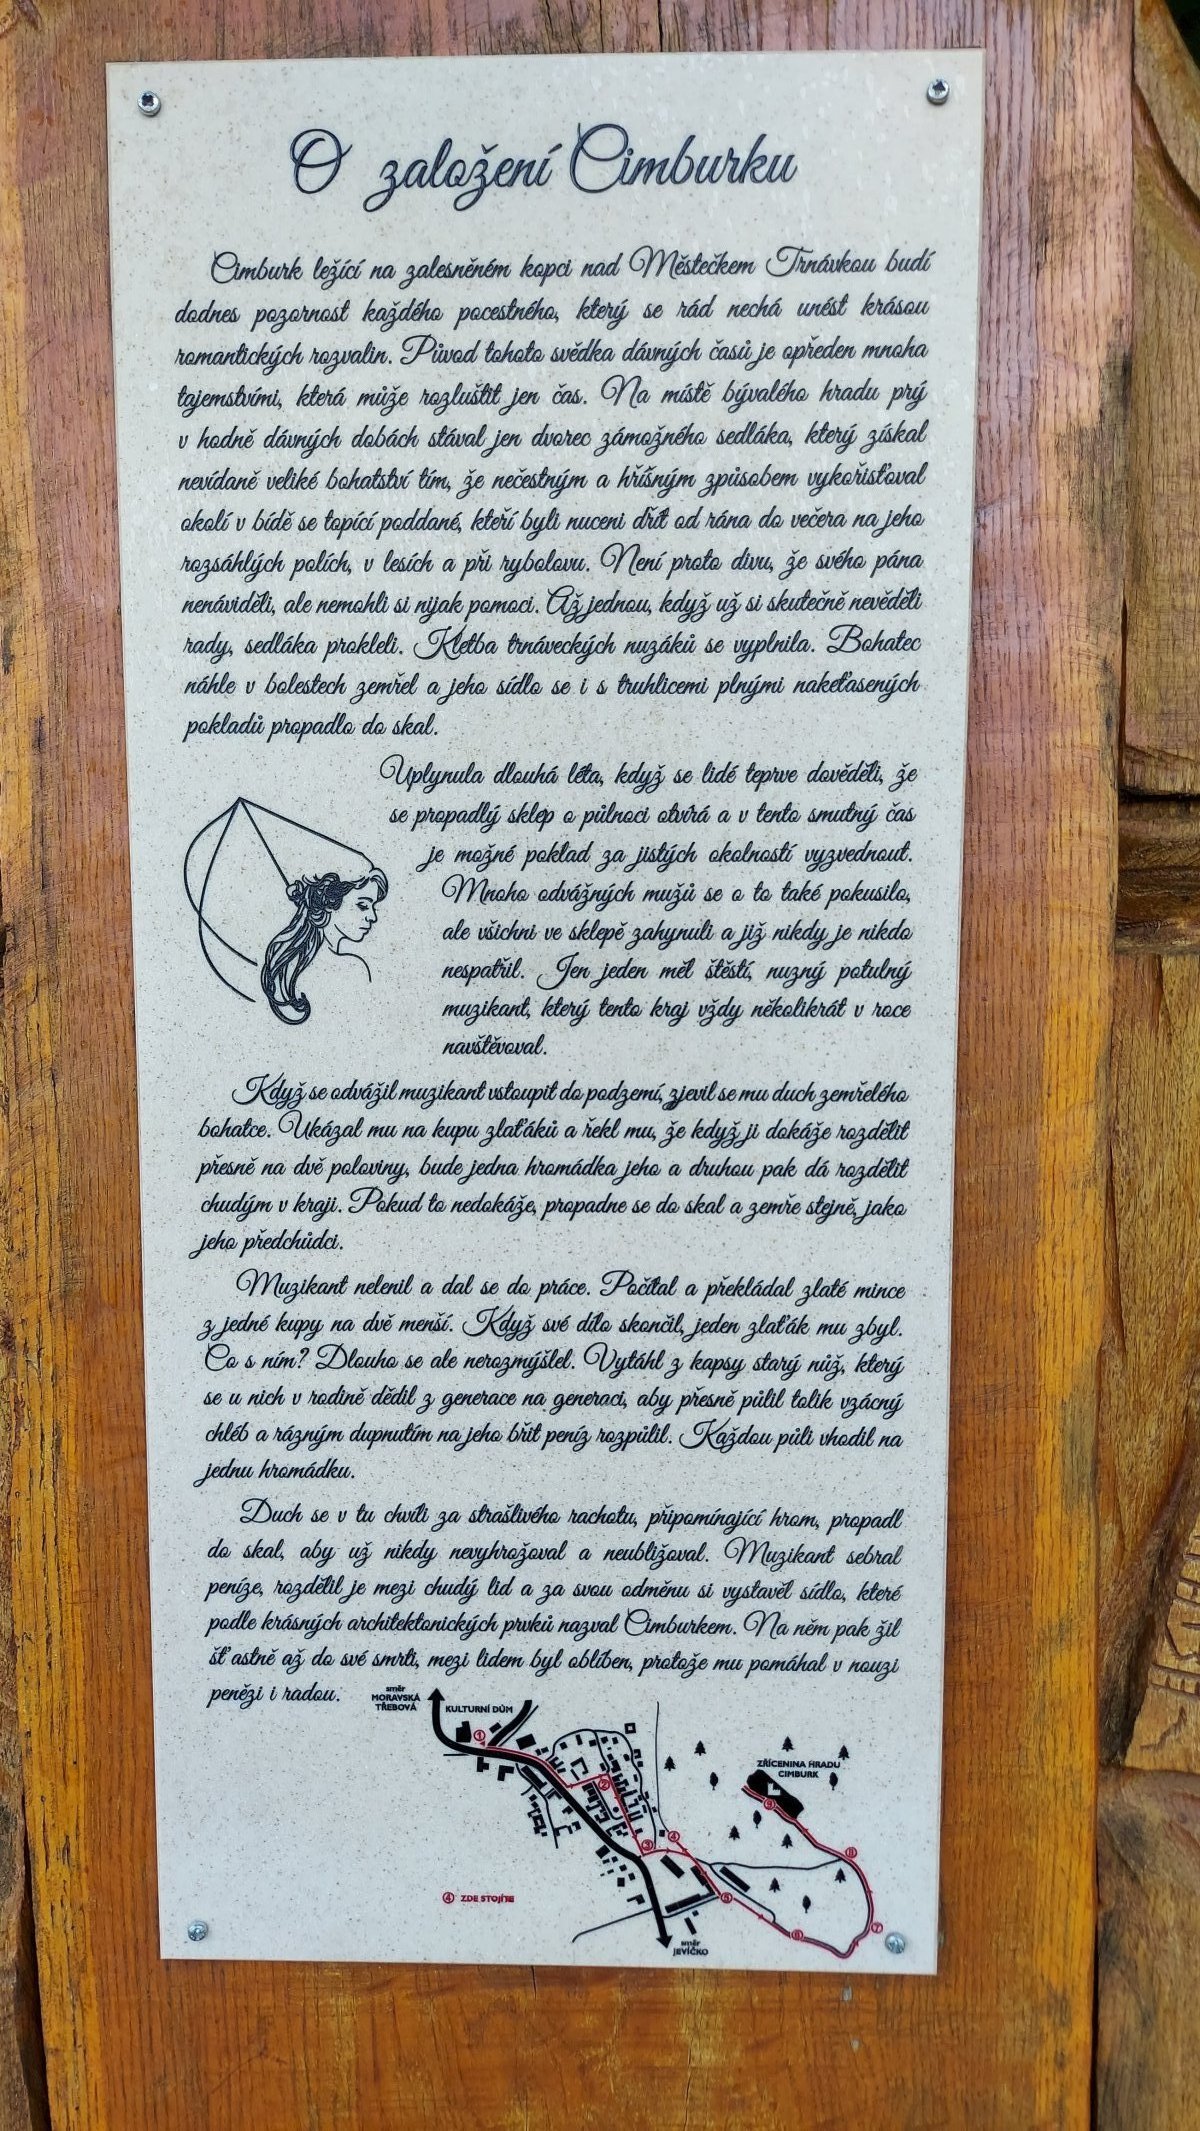 O založení Cimburku
Cimburk ležící na zalesněném kopci nad Městečkem Trnávkou budí
dodnes pozornost každého pocestného, který se rád nechá unést krásou
romantických rozvalin. Původ tohoto svědka dávných časů je opředen mnoha
tajemstvími, která může rozluštit jen čas. Na místě bývalého hradu prý
v hodně dávných dobách stával jen dvorec zámožného sedláka, který získal
nevídaně veliké bohatství tím, že nečestným a hříšným způsobem vykořisťoval
okolí v bídě se topící poddané, kteří byli nuceni dřít od rána do večera na jeho
rozsáhlých polích, v lesích a při rybolovu. Není proto divu, že svého pána
nenáviděli, ale nemohli si nijak pomoci. Až jednou, když už si skutečně nevěděli
rady, sedláka prokleli. Kletba trnáveckých nuzáků se vyplnila. Bohatec
náhle v bolestech zemřel a jeho sídlo se i s truhlicemi plnými nakeťasených
pokladů propadlo do skal.
Uplynula dlouhá léta, když se lidé teprve dověděli, že
se propadlý sklep o půlnoci otvírá a v tento smutný čas
je možné poklad za jistých okolností vyzvednout.
Mnoho odvážných mužů se o to také pokusilo,
ale všichni ve sklepě zahynuli a již nikdy je nikdo
nespatřil. Jen jeden měl štěstí, nuzný potulný
muzikant, který tento kraj vždy několikrát v roce
navštěvoval.
Když se odvážil muzikant vstoupit do podzemí, zjevil se mu duch zemřelého
bohatce. Ukázal mu na kupu zlaťáků a řekl mu, že když ji dokáže rozdělit
přesně na dvě poloviny, bude jedna hromádka jeho a druhou pak dá rozdělit
chudým v kraji. Pokud to nedokáže, propadne se do skal a zemře stejně, jako
jeho předchůdci.
Muzikant nelenil a dal se do práce. Počítal a překládal zlaté mince
z jedné kupy na dvě menší. Když své dílo skončil, jeden zlaťák mu zbyl.
Co s ním? Dlouho se ale nerozmýšlel. Vytáhl z kapsy starý nůž, který
se u nich v rodině dědil z generace na generaci, aby přesně půlil tolik vzácný
chléb a rázným dupnutím na jeho břit peníz rozpůlil. Každou půli vhodil na
jednu hromádku.
Duch se v tu chvíli za strašlivého rachotu, připomínající hrom, propadl
do skal, aby už nikdy nevyhrožoval a neubližoval. Muzikant sebral
peníze, rozdělil je mezi chudý lid a za svou odměnu si vystavěl sídlo, které
podle krásných architektonických prvků nazval Cimburkem. Na něm pak žil
šť astně až do své smrti, mezi lidem byl oblíben, protože mu pomáhal v nouzi
penězi i radou.
směr
MORAVSKÁ
TŘEBOVÁ
KULTURNÍ DŮM
1
2
ZŘÍCENINA HRADU
CIMBURK
9
3
4
8
5
6
7
4 ZDE STOJÍTE
směr
JEVÍČKO